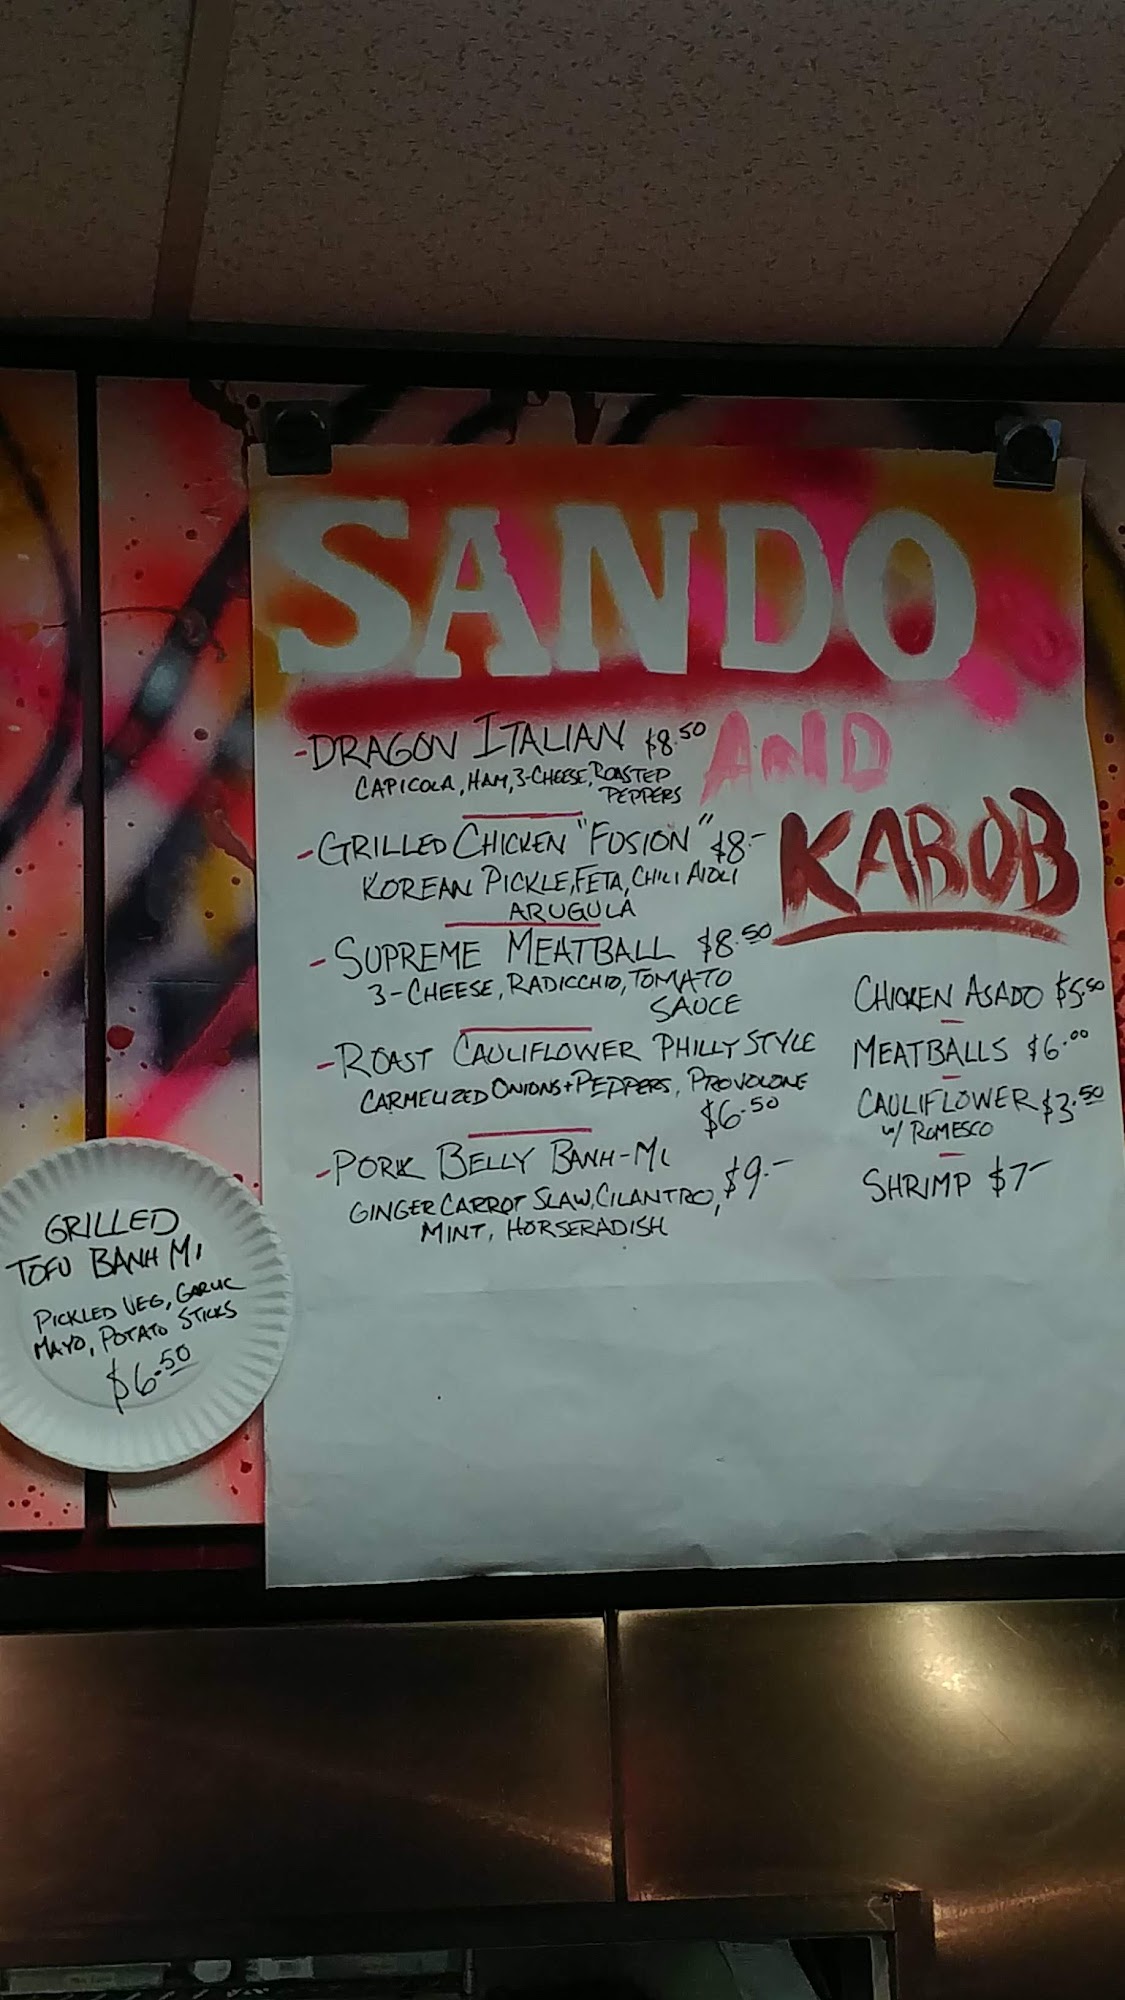 SANDO
AND
KABOB
-DRAGON ITALIAN $8.50
CAPICOLA, HAM, 3-CHEESE, ROASTED
PEPPERS
-GRILLED CHICKEN "FUSION" $8.-
KOREAN PICKLE, FETA, CHILI AIOLI
ARUGULA
-SUPREME MEATBALL $8.50
3-CHEESE, RADICCHIO, TOMATO
SAUCE
-ROAST CAULIFLOWER PHILLY STYLE
CARMELIZED ONIONS+PEPPERS, PROVOLONE
$6.50
-PORK BELLY BANH-MI $9.-
GINGER CARROT SLAW, CILANTRO,
MINT, HORSERADISH
CHICKEN ASADO $5.50
MEATBALLS $6.00
CAULIFLOWER $3.50
W/ ROMESCO
SHRIMP $7-
GRILLED
TOFU BANH MI
PICKLED VEG, GARLIC
MAYO, POTATO STICKS
$6.50